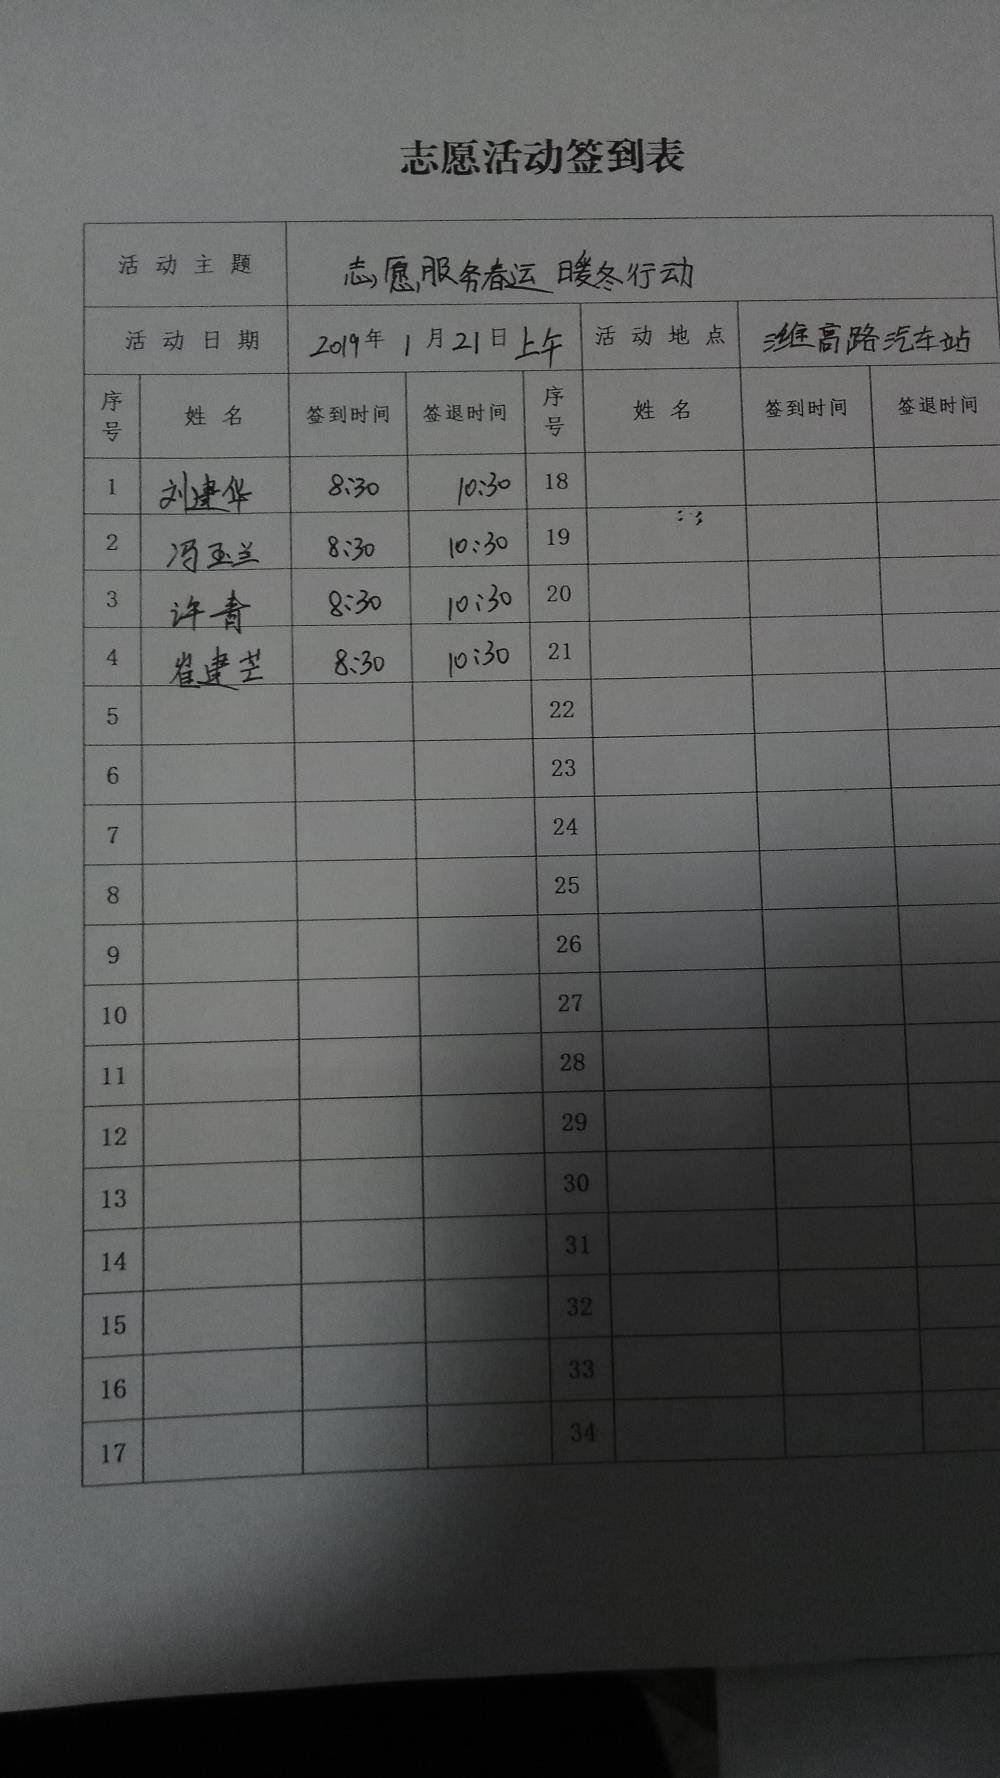 志愿活动签到表
活动主题 志愿服务春运 暖冬行动
活动日期 2019年 1月21日上午 活动地点 潍高路汽车站
序号 姓名 签到时间 签退时间 序号 姓名 签到时间 签退时间
1 刘建华 8:30 10:30 18
2 冯玉兰 8:30 10:30 19
3 许青 8:30 10:30 20
4 崔建芒 8:30 10:30 21
5 22
6 23
7 24
8 25
9 26
10 27
11 28
12 29
13 30
14 31
15 32
16 33
17 34